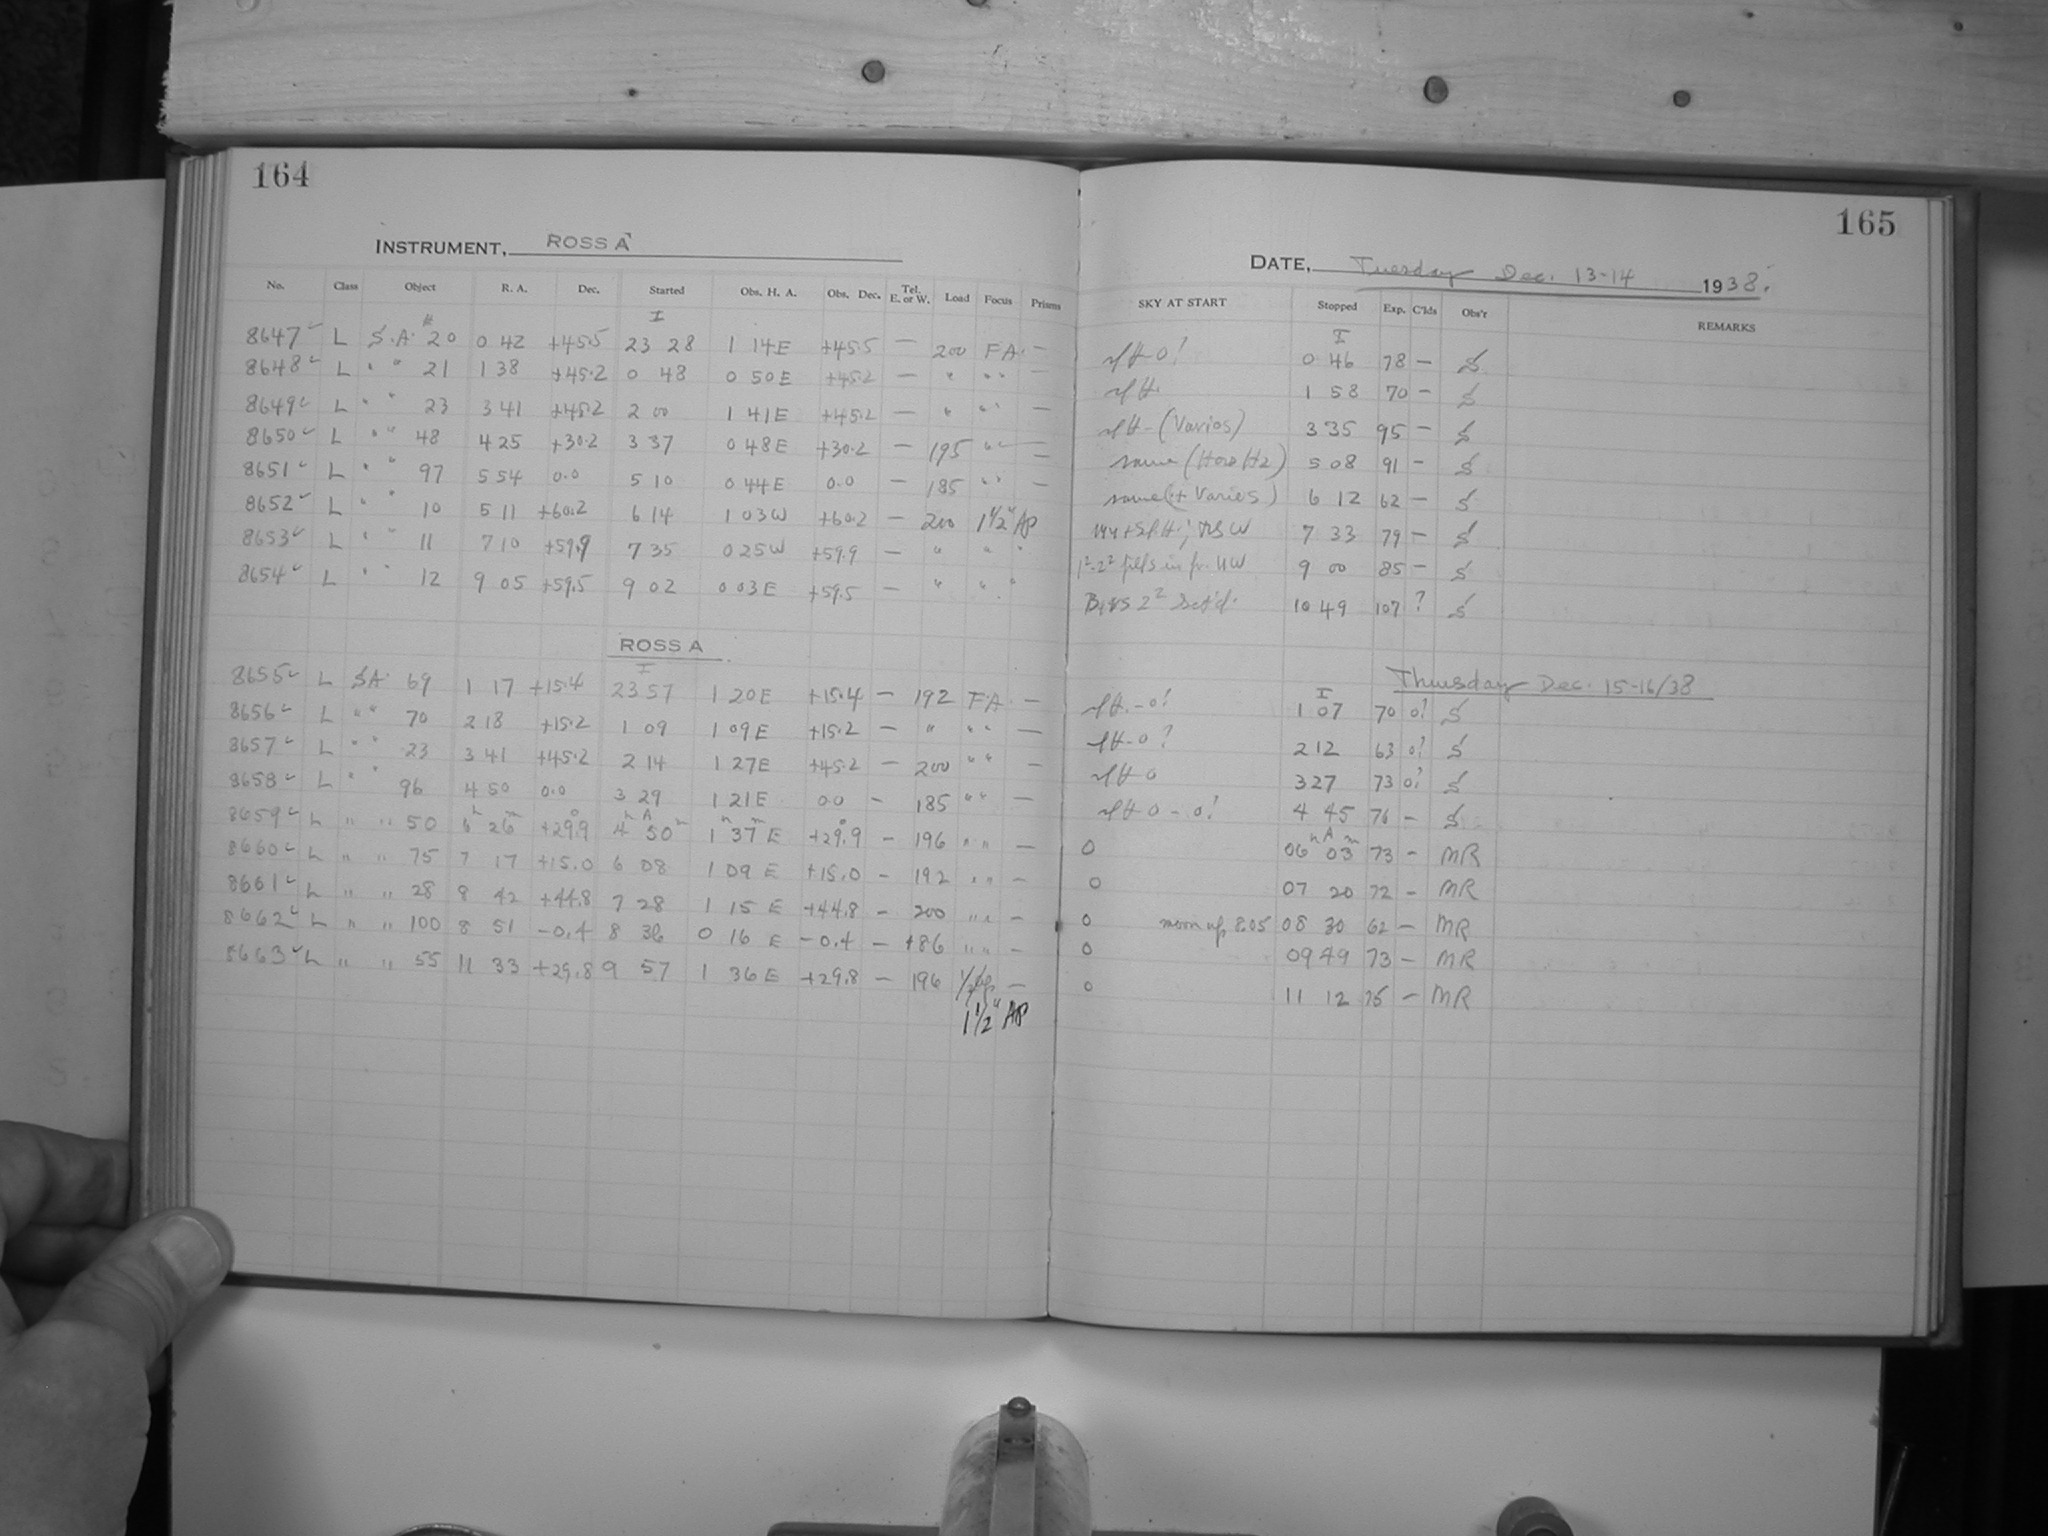 164
INSTRUMENT, ROSS A
No. Class Object R. A. Dec. Started Obs. H. A. Obs. Dec. Tel. E. or W. Load Focus Prisms
I
8647 L S.A. # 20 0 42 +45.5 23 28 1 14 E +45.5 — 200 F A. —
8648 L " " 21 1 38 +45.2 0 48 0 50 E +45.2 — " " " —
8649 L " " 23 3 41 +45.2 2 00 1 41 E +45.2 — " " " —
8650 L " " 48 4 25 +30.2 3 37 0 48 E +30.2 — 195 " " —
8651 L " " 97 5 54 0.0 5 10 0 44 E 0.0 — 185 " " —
8652 L " " 10 5 11 +60.2 6 14 1 03 W +60.2 — 200 1 1/2" Ap
8653 L " " 11 7 10 +59.9 7 35 0 25 W +59.9 — " " "
8654 L " " 12 9 05 +59.5 9 02 0 03 E +59.5 — " " "
ROSS A
I
8655 L S.A. 69 1 17 +15.4 23 57 1 20 E +15.4 — 192 F.A. —
8656 L " " 70 2 18 +15.2 1 09 1 09 E +15.2 — " " " —
8657 L " " 23 3 41 +45.2 2 14 1 27 E +45.2 — 200 " " —
8658 L " " 96 4 50 0.0 3 29 1 21 E 0.0 — 185 " " —
8659 L " " 50 6h 26m +29.9 4h A 50m 1h 37m E +29.9 — 196 " " —
8660 L " " 75 7 17 +15.0 6 08 1 09 E +15.0 — 192 " " —
8661 L " " 28 8 42 +44.8 7 28 1 15 E +44.8 — 200 " " —
8662 L " " 100 8 51 -0.4 8 36 0 16 E -0.4 — 186 " " —
8663 L " " 55 11 33 +29.8 9 57 1 36 E +29.8 — 196 —
1 1/2" AP
165
DATE, Tuesday Dec. 13-14 1938.
SKY AT START Stopped Exp. C'lds Obs'r REMARKS
I
0 46 78 — S
1 58 70 — S
(Varios) 3 35 95 — S
same 5 08 91 — S
same (+ Varios) 6 12 62 — S
7 33 79 — S
9 00 85 — S
10 49 107 ? S
Thursday Dec. 15-16/38
I
1 07 70 0! S
2 12 63 0! S
3 27 73 0? S
4 45 76 — S
0 06h A 03m 73 — MR
0 07 20 72 — MR
0 moon up 8.05 08 30 62 — MR
0 09 49 73 — MR
0 11 12 75 — MR